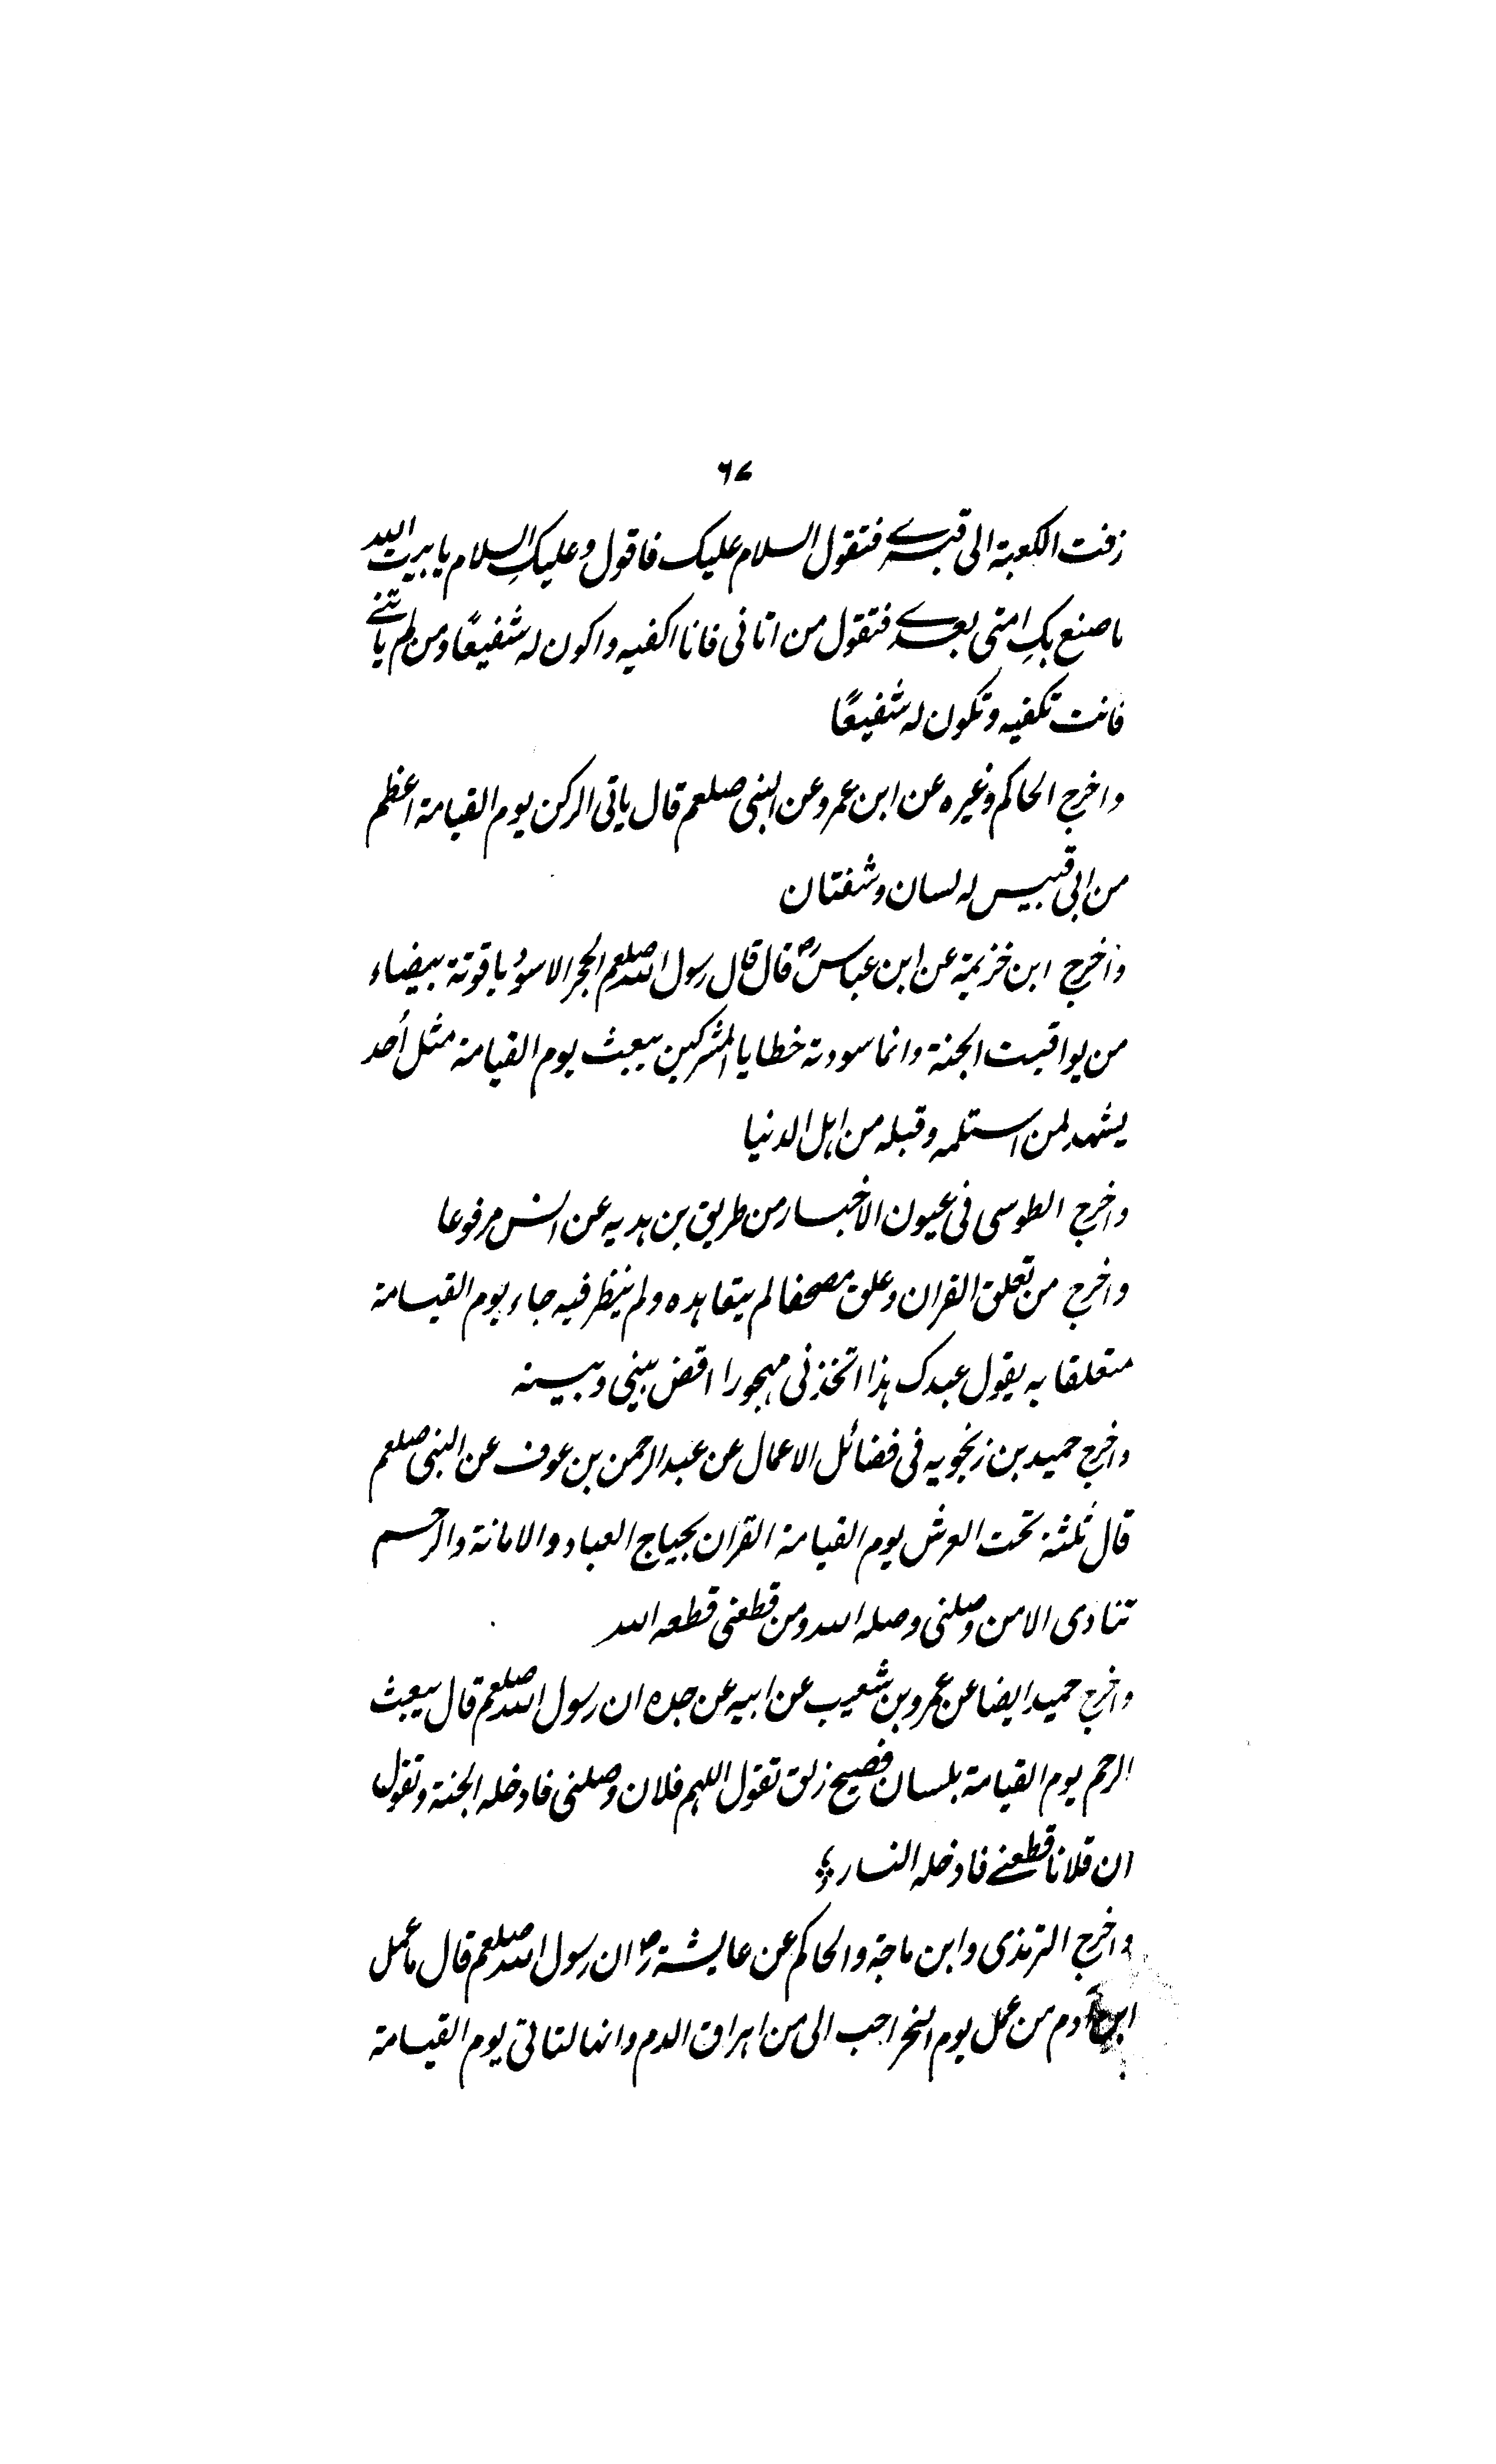 ۶۷
زفت الکعبة الی قبرے فتقول السلام علیک فاقول وعلیکِ السلام یا بیت اللہ
ما صنع بکِ امتی بعدے فتقول من اتانی فانا اکفیه واکون له شفیعًا ومن لم یاتنے
فانت تکفیه وتکون له شفیعًا
واخرج الحاکم وغیره عن ابن عمرو عن النبی صلعم قال یاتی الرکن یوم القیامة اعظم
من ابی قبیس له لسان وشفتان
واخرج ابن خزیمة عن ابن عباسؓ قال قال رسول اللہ صلعم الحجر الاسود یاقوتة بیضاء
من یواقیت الجنة وانما سودته خطایا المشرکین یبعث یوم القیامة مثل اُحد
یشهد لمن استلمه وقبله من اہل الدنیا
واخرج الطوسی فی عیون الاخبار من طریق بن ہدیه عن انس مرفوعا
واخرج من تعلق القران وعلق مصحفا لم یتعاہده ولم ینظر فیه جاء یوم القیامة
متعلقا به یقول عبدک ہذا اتخذنی مهجورا اقض بینی وبینه
واخرج حمید بن زنجویه فی فضائل الاعمال عن عبد الرحمن بن عوف عن النبی صلعم
قال ثلثة تحت العرش یوم القیامة القران یحیاج العباد والامانة والرحم
تنادی الا من وصلنی وصله اللہ ومن قطعنی قطعه اللہ
واخرج حمید ایضا عن عمرو بن شعیب عن ابیه عن جده ان رسول اللہ صلعم قال یبعث
الرحم یوم القیامة بلسان فصیح زلق تقول اللهم فلان وصلنی فادخله الجنة وتقول
ان فلانا قطعنے فادخله النار
واخرج الترمذی وابن ماجة والحاکم عن عایشةؓ ان رسول اللہ صلعم قال ما عمل
ابن آدم من عمل یوم النحر احب الی من اہراق الدم وانها لتاتی یوم القیامة